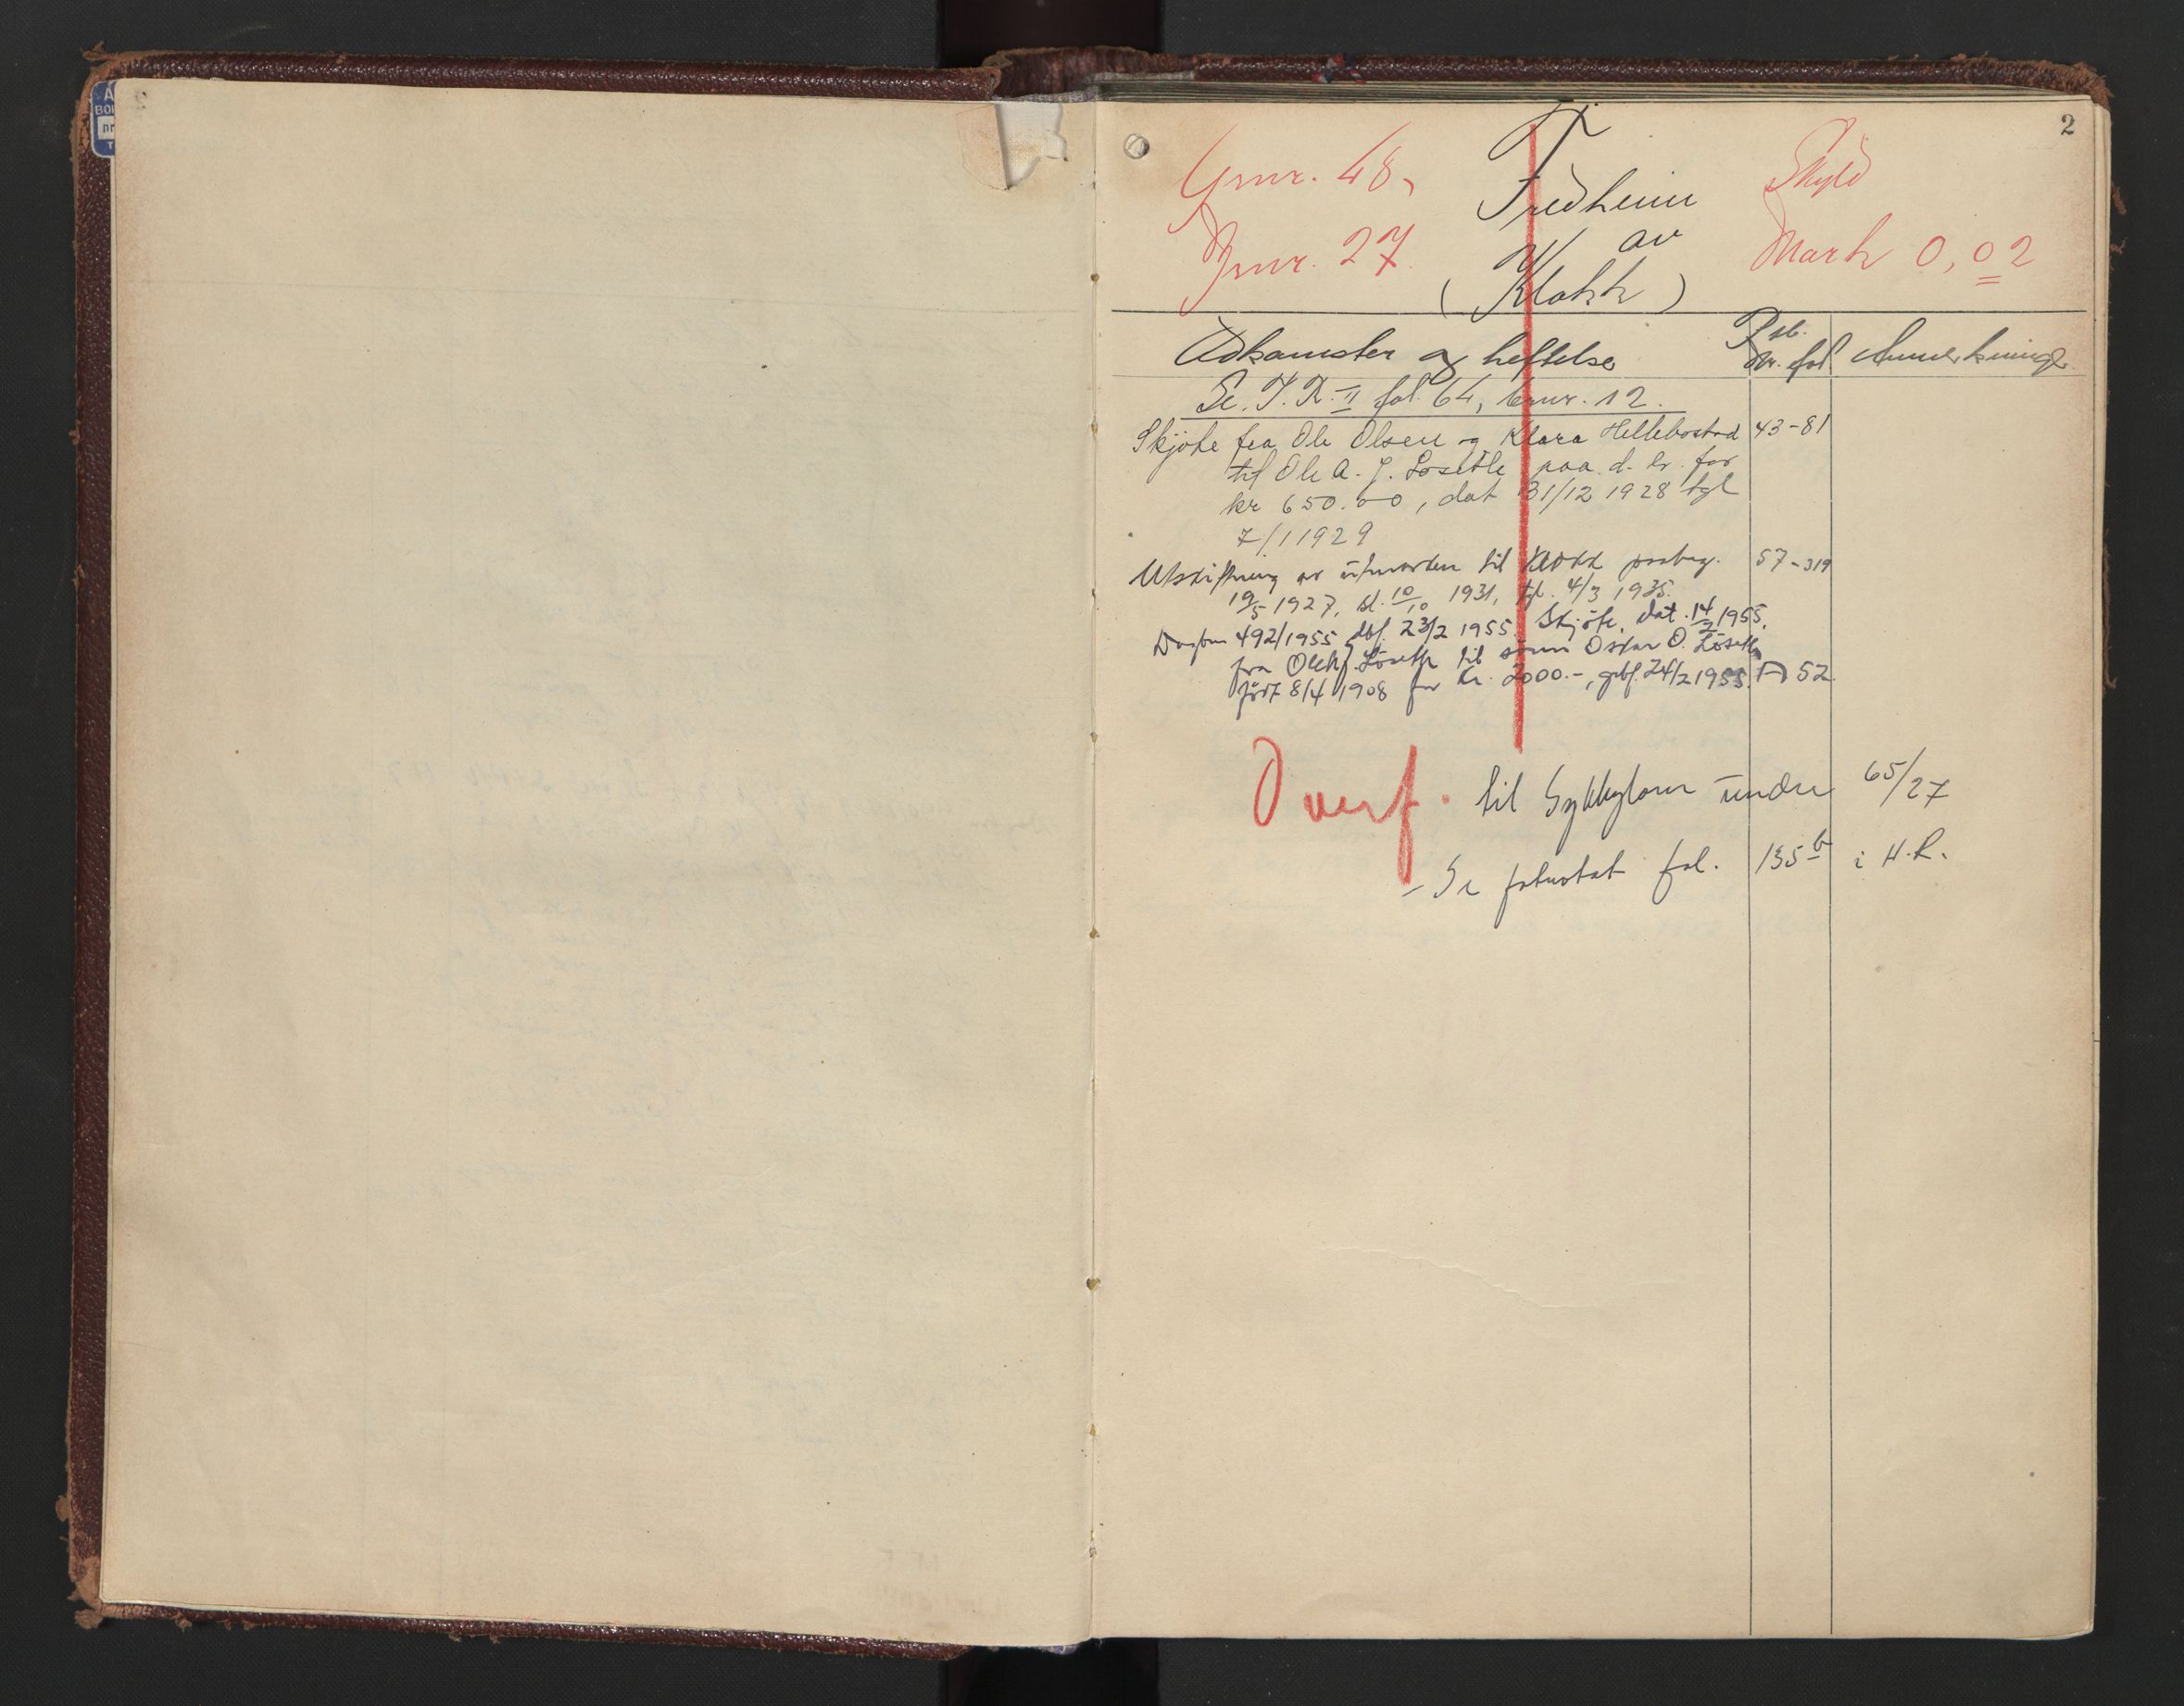 2
Gnr. 48,
Bnr. 27
Fredheim
av
(Klokk)
Skyld
Mark 0,02
Adkomster og heftelser
Psb.
Nr. fol.
Anmerkninger
Se P. R. II fol. 64, bnr. 12.
Skjøte fra Ole Olsen og Klara Hellebostad 43-81
til Ole A. J. Løsethe paa d. br. for
kr 650.00, dat 31/12 1928 tgl
7/1 1929
Utskiftning av utmarken til Klokk paabeg. 57-319
19/5 1927, sl. 10/10 1931, tgl. 4/3 1935.
Dagbnr 492/1955 dbf. 23/2 1955. Skjöte, dat. 14/2 1955,
fra Ole J. Löseth til sönn Oskar O. Löseth
født 8/4 1908 for kr. 2000.-, gbf. 24/2 1955. A 52.
Overf. til Sykkylven under 65/27
- Se fotostat fol. 135b i H.R.